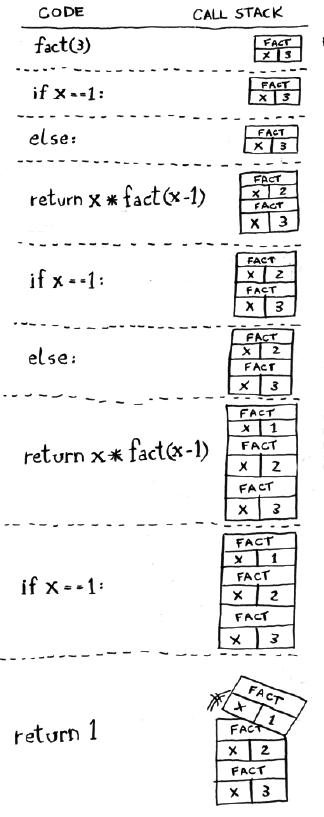 CODE CALL STACK
fact(3)
FACT
X 3
if x==1:
FACT
X 3
else:
FACT
X 3
return x * fact(x-1)
FACT
X 2
FACT
X 3
if x==1:
FACT
X 2
FACT
X 3
else:
FACT
X 2
FACT
X 3
return x * fact(x-1)
FACT
X 1
FACT
X 2
FACT
X 3
if x==1:
FACT
X 1
FACT
X 2
FACT
X 3
return 1
FACT
X 1
FACT
X 2
FACT
X 3